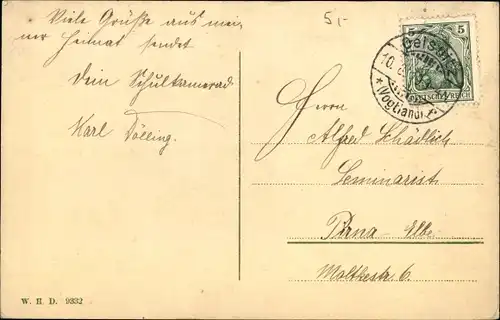 5,-
Viele Grüße aus mei-
ner Heimat sendet
Dein Schulkamerad
Karl Dölling.
5 5
DEUTSCHES REICH
Oelsnitz
10.
* (Vogtland) *
Herrn
Alfred Schädlich
Seminarist
Pirna-Elbe
Moltkestr. 6.
W. H. D. 9332